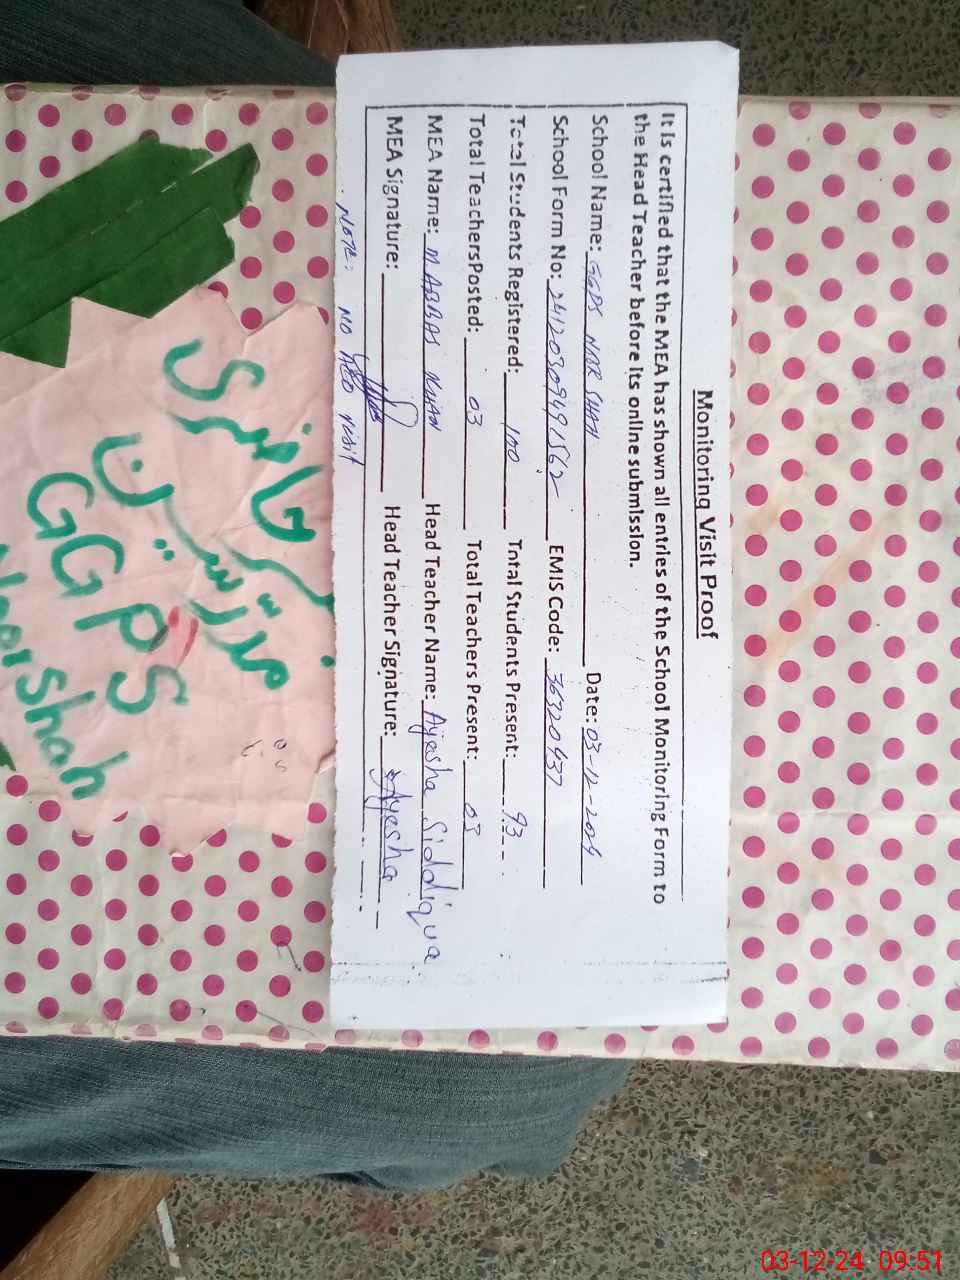 Monitoring Visit Proof
It is certified that the MEA has shown all entries of the School Monitoring Form to
the Head Teacher before its online submission.
School Name: GGPS NOOR SHAH Date: 03-12-2024
School Form No: 24120309491562 EMIS Code: 36320437
Total Students Registered: 100 Total Students Present: 93
Total TeachersPosted: 03 Total Teachers Present: 03
MEA Name: M. ABBAS KHAN Head Teacher Name: Ayesha Siddiqua
MEA Signature: Head Teacher Signature: Ayesha
NOTE: NO AEO visit
حاضری
مدرسین
GGPS
Noor shah
03-12-24 09:51